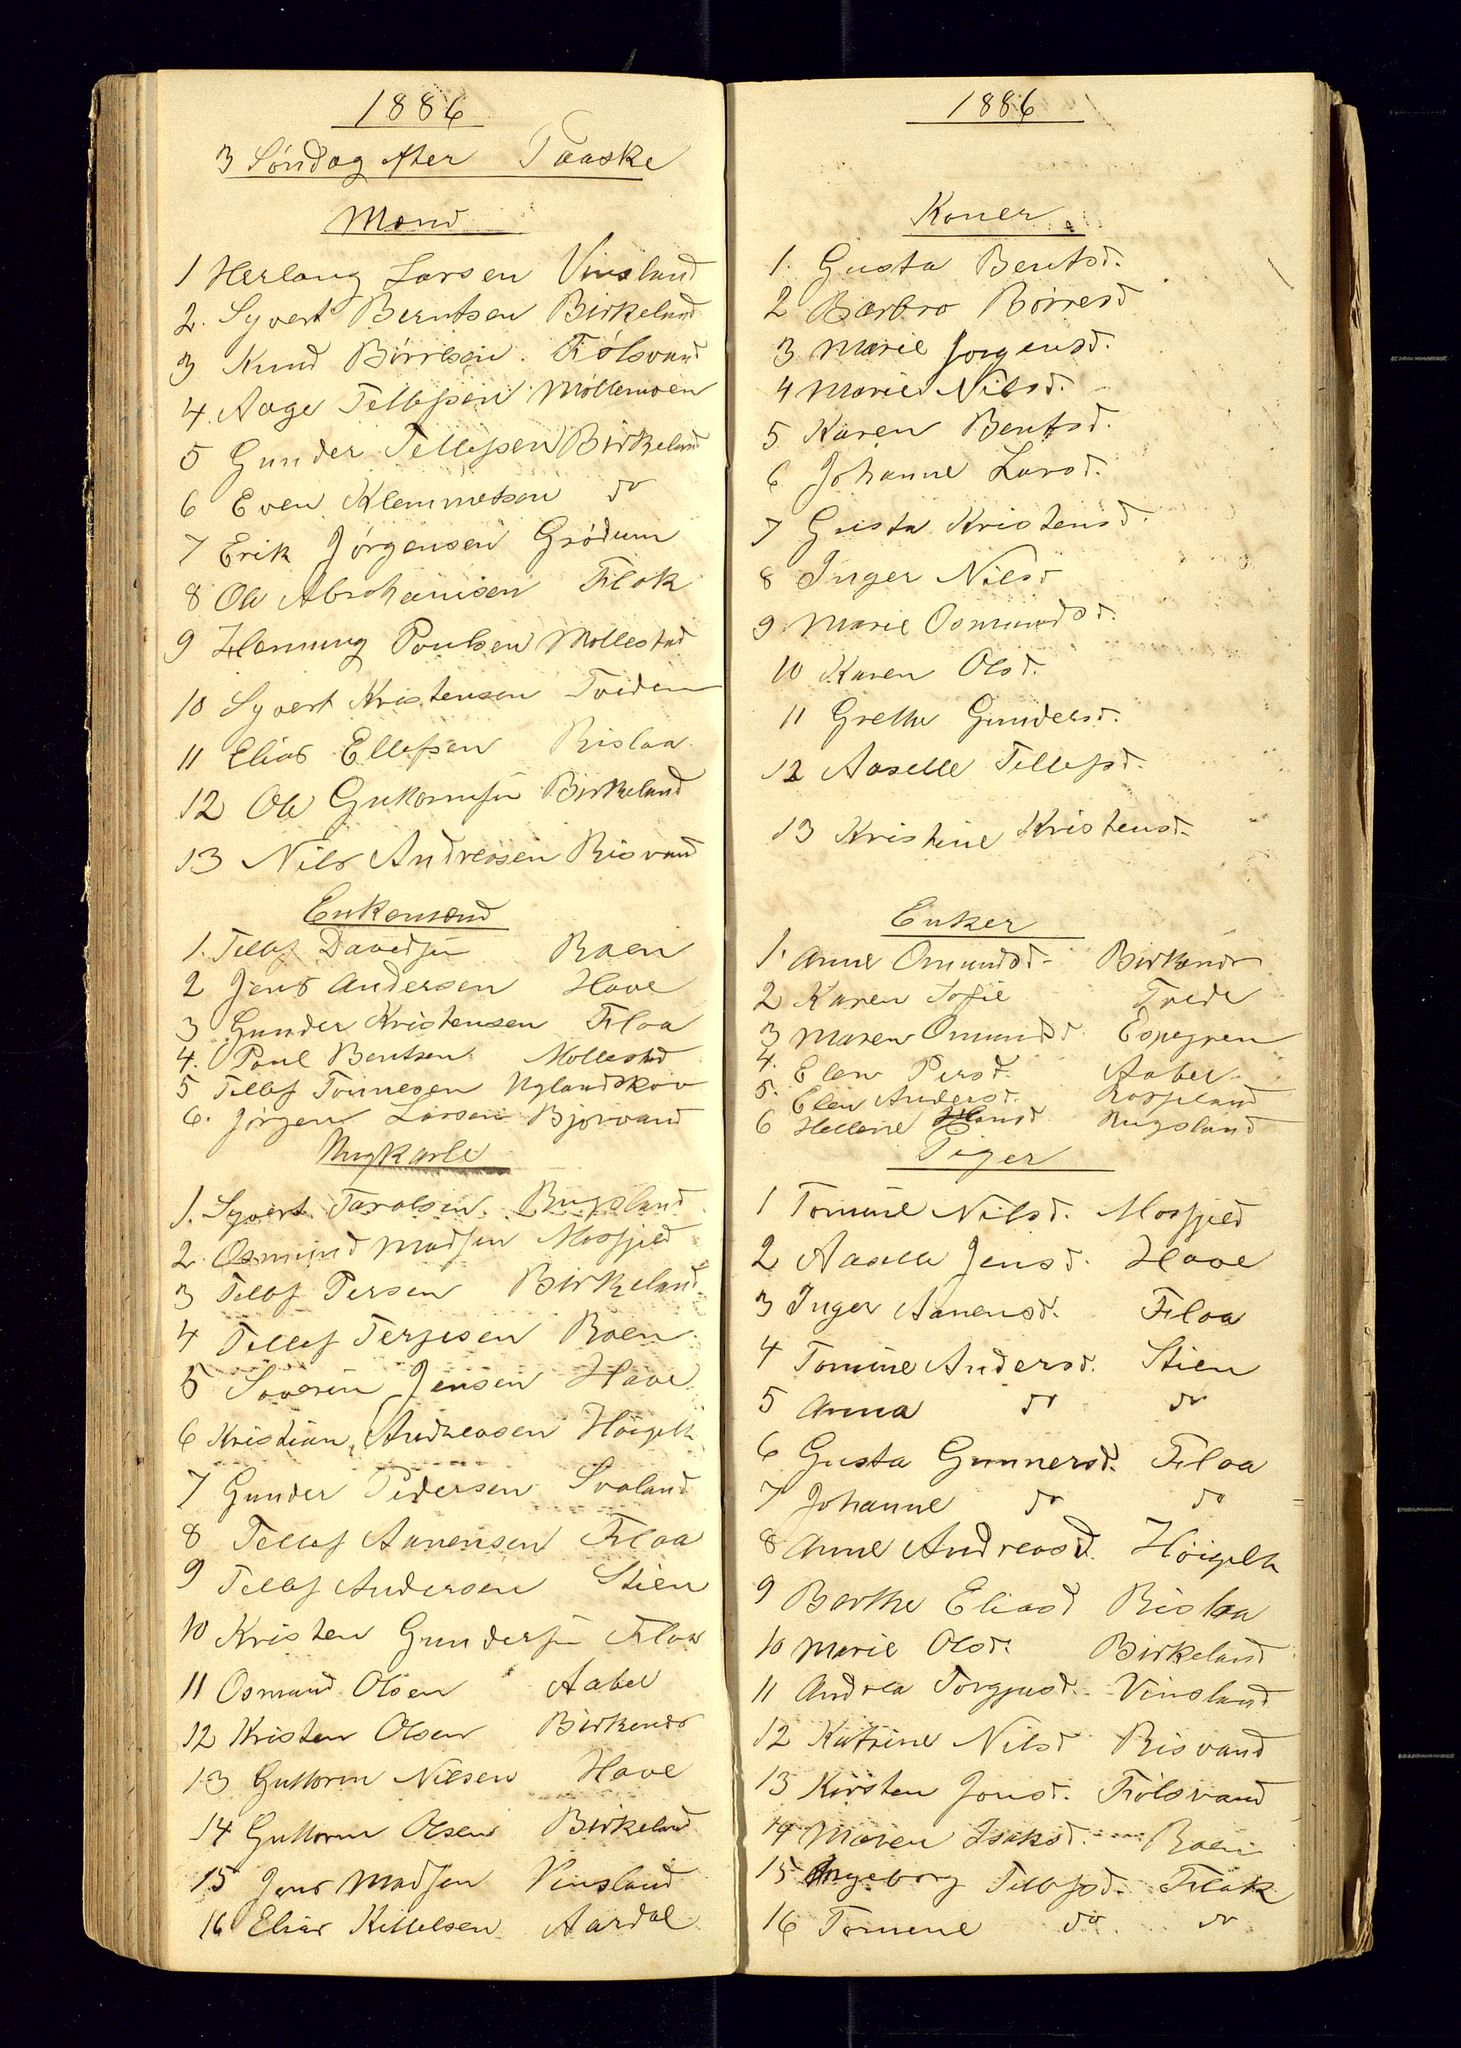 1886
3 Søndag efter Paaske
Mænd
1 Herlaug Larsen Vinsland
2. Syvert Berntsen Birkeland
3 Knud Børresen Fiólsvand
4. Aage Tellefsen Möllemoen
5 Gunder Tellefsen Birkeland
6 Even Klemmetsen do
7 Erik Jørgensen Grødum
8 Ole Abrahamsen Flak
9 Henning Poulsen Mollestad
10 Syvert Kristensen Tveden
11 Elias Ellefsen Rislaa
12 Ole Guttormsen Birkeland
13 Nils Andreasen Risvand
Enkemænd
1. Tellef Davidsen Boen
2 Jens Andersen Have
3 Gunder Kristensen Flaa
4. Poul Bentsen Mollestad
5 Tellef Tönnesen Uglandskov
6. Jørgen Larsen Bjorvand
Ungkarle
1. Syvert Taralsen Bugsland
2. Osmund Madsen Mosfjeld
3 Tellef Persen Birkeland
4 Tellef Terjesen Boen
5 Soverin Jensen Have
6 Kristian Andreasen Höigelt
7 Gunder Pedersen Svaland
8 Tellef Aanensen Flaa
9 Tellef Andersen Stien
10 Kristen Gundersen Flaa
11 Osmund Olsen Aabel
12 Kristen Olsen Birkenes
13 Guttorm Nilsen Have
14 Guttorm Olsen Birkeland
15 Jens Madsen Vinsland
16 Elias Kittelsen Aardal
1886
Koner
1. Gusta Bentsd.
2 Barbro Börresd
3 Marie Jorgensd.
4 Marie Nilsd.
5 Karen Bentsd.
6 Johanne Larsd.
7 Gusta Kristensd.
8 Inger Nilsd
9 Marie Osmundsd.
10 Karen Olsd.
11 Grethe Gundersd.
12 Aaselle Tellefsd.
13 Kristine Kristensd.
Enker
1. Anne Omundsd. Birkenes
2 Karen Sofie Tvede
3 Maren Omundsd Espegren
4. Elen Persd. Aabel
5. Elen Andersd. Rosseland
6 Hellene Hansd Bugsland
Piger
1 Tomine Nilsd. Mosfjeld
2 Aaselle Jensd. Have
3 Inger Aanensd. Flaa
4 Tomine Andersd. Stien
5 Anna do do
6 Gusta Gunnersd. Flaa
7 Johanne do do
8 Anne Andreasd. Höigelt
9 Berthe Eliasd Rislaa
10 Marie Olsd. Birkeland
11 Andrea Torgjusd. Vinsland
12 Katrine Nilsd Risvand
13 Kirsten Jonsd. Fiólsvand
14 Maren Isaksd. Boen
15 Ingeborg Tellefsd. Flak
16 Tomine do do